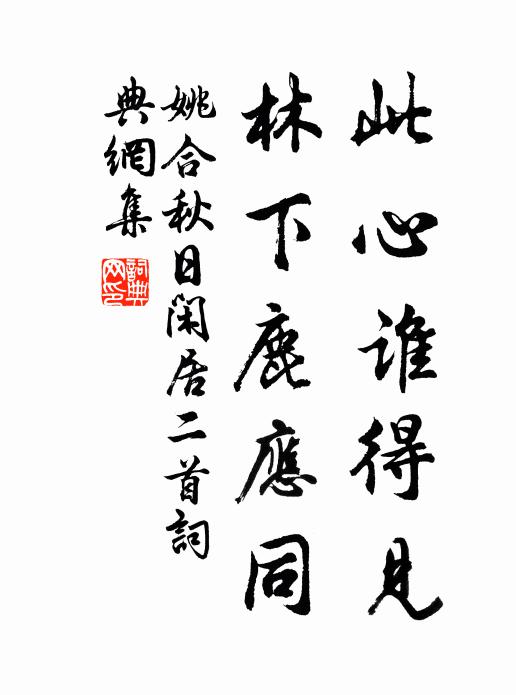 此心誰得見
林下鹿應同
姚合秋日閑居二首詞
典網集
詞典網印